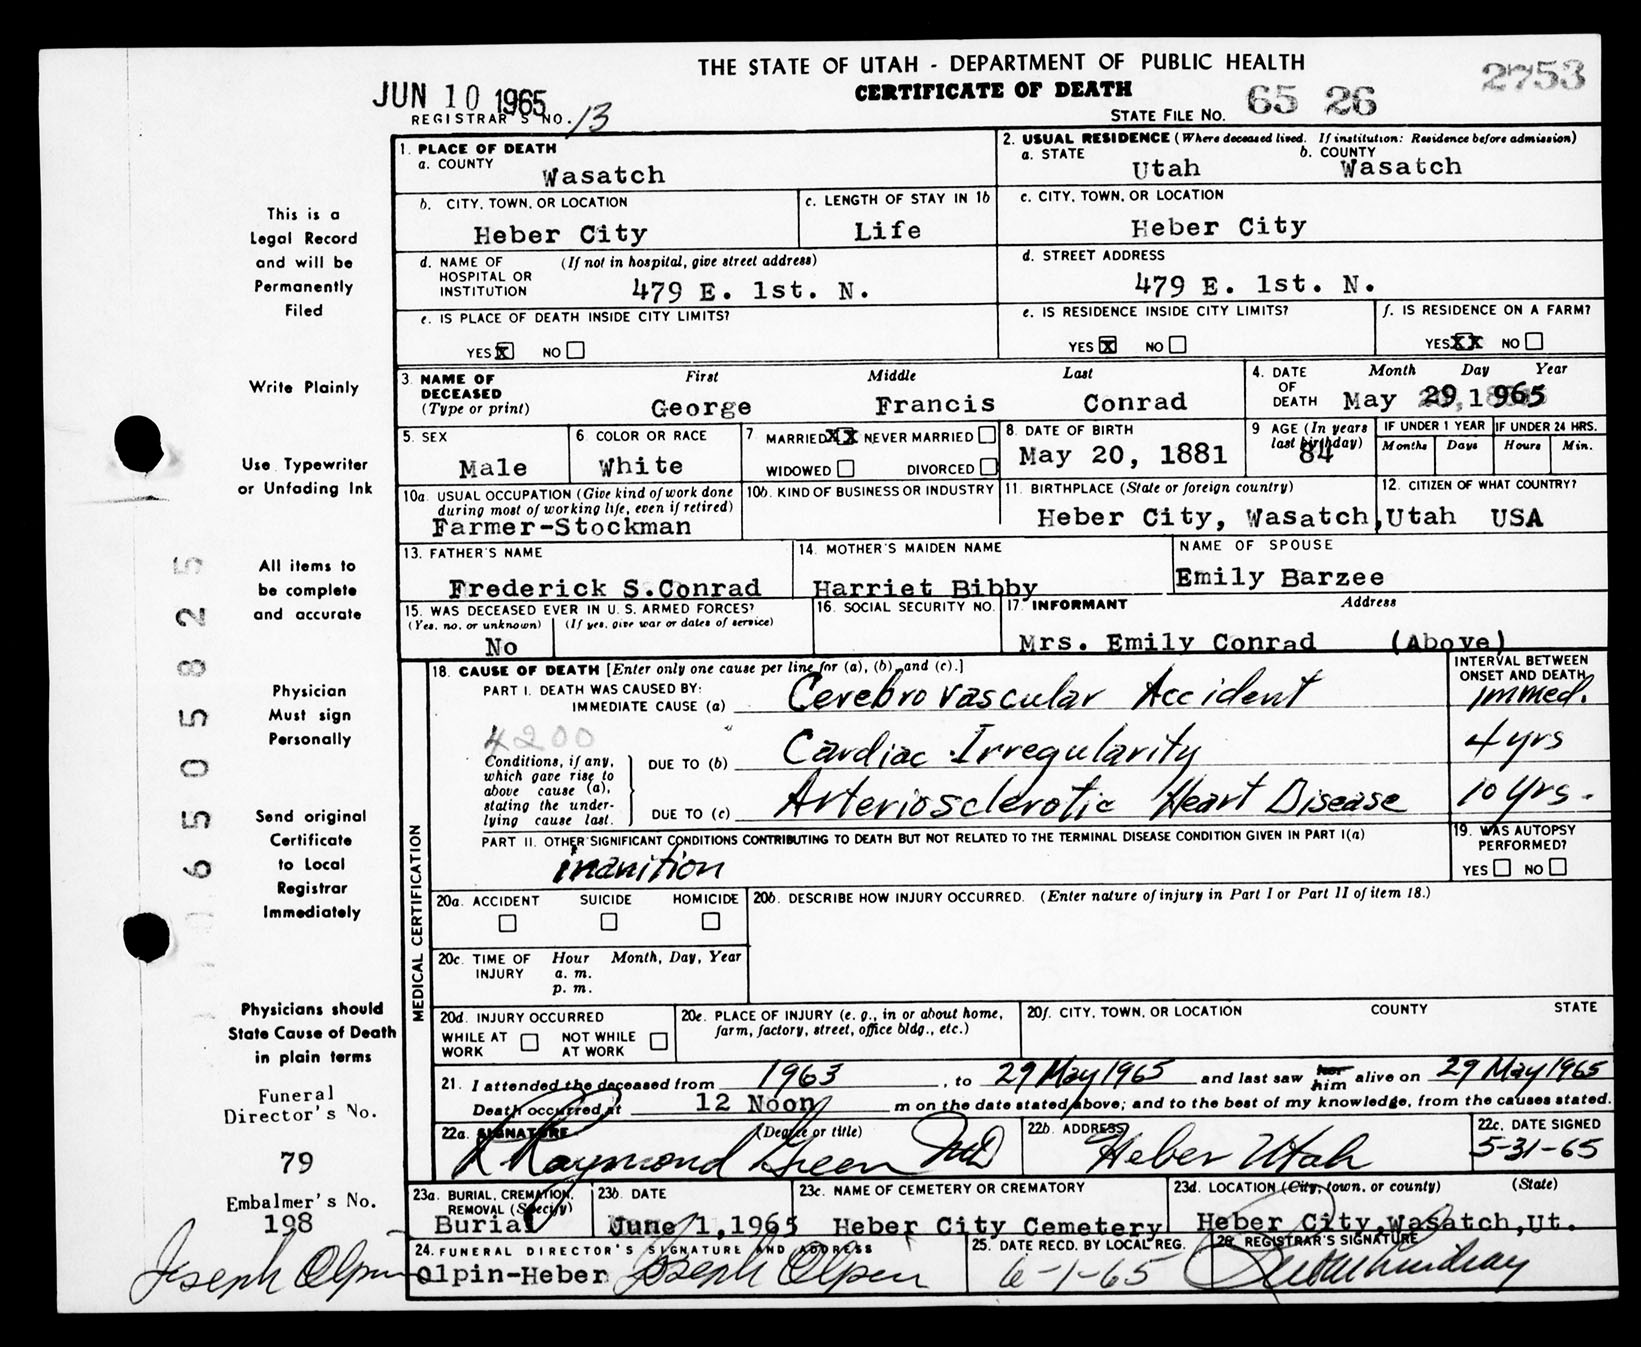 THE STATE OF UTAH - DEPARTMENT OF PUBLIC HEALTH
CERTIFICATE OF DEATH
2753
JUN 10 1965
REGISTRAR'S NO. 13
STATE FILE NO. 65 26
1. PLACE OF DEATH
a. COUNTY
Wasatch
2. USUAL RESIDENCE (Where deceased lived. If institution: Residence before admission)
a. STATE
Utah
b. COUNTY
Wasatch
b. CITY, TOWN, OR LOCATION
Heber City
c. LENGTH OF STAY IN 1b
Life
c. CITY, TOWN, OR LOCATION
Heber City
d. NAME OF HOSPITAL OR INSTITUTION
(If not in hospital, give street address)
479 E. 1st. N.
d. STREET ADDRESS
479 E. 1st. N.
e. IS PLACE OF DEATH INSIDE CITY LIMITS?
YES X NO
e. IS RESIDENCE INSIDE CITY LIMITS?
YES X NO
f. IS RESIDENCE ON A FARM?
YES XX NO
3. NAME OF DECEASED
(Type or print)
First Middle Last
George Francis Conrad
4. DATE OF DEATH
Month Day Year
May 29,1965
5. SEX
Male
6. COLOR OR RACE
White
7. MARRIED XX NEVER MARRIED
WIDOWED DIVORCED
8. DATE OF BIRTH
May 20, 1881
9 AGE (In years last birthday)
84
IF UNDER 1 YEAR
Months Days
IF UNDER 24 HRS.
Hours Min.
10a. USUAL OCCUPATION (Give kind of work done during most of working life, even if retired)
Farmer-Stockman
10b. KIND OF BUSINESS OR INDUSTRY
11. BIRTHPLACE (State or foreign country)
Heber City, Wasatch,Utah
12. CITIZEN OF WHAT COUNTRY?
USA
13. FATHER'S NAME
Frederick S.Conrad
14. MOTHER'S MAIDEN NAME
Harriet Bibby
NAME OF SPOUSE
Emily Barzee
15. WAS DECEASED EVER IN U.S. ARMED FORCES?
(Yes, no, or unknown) (If yes, give war or dates of service)
No
16. SOCIAL SECURITY NO.
17. INFORMANT Address
Mrs. Emily Conrad (Above)
MEDICAL CERTIFICATION
18. CAUSE OF DEATH [Enter only one cause per line for (a), (b), and (c).]
INTERVAL BETWEEN ONSET AND DEATH
PART I. DEATH WAS CAUSED BY:
IMMEDIATE CAUSE (a) Cerebro vascular Accident
immed.
4200
Conditions, if any, which gave rise to above cause (a), stating the under-lying cause last.
DUE TO (b) Cardiac Irregularity
4 yrs
DUE TO (c) Arteriosclerotic Heart Disease
10 yrs.
PART II. OTHER SIGNIFICANT CONDITIONS CONTRIBUTING TO DEATH BUT NOT RELATED TO THE TERMINAL DISEASE CONDITION GIVEN IN PART I(a)
inanition
19. WAS AUTOPSY PERFORMED?
YES NO
20a. ACCIDENT SUICIDE HOMICIDE
20b. DESCRIBE HOW INJURY OCCURRED. (Enter nature of injury in Part I or Part II of item 18.)
20c. TIME OF INJURY
Hour Month, Day, Year
a. m.
p. m.
20d. INJURY OCCURRED
WHILE AT WORK NOT WHILE AT WORK
20e. PLACE OF INJURY (e. g., in or about home, farm, factory, street, office bldg., etc.)
20f. CITY, TOWN, OR LOCATION COUNTY STATE
21. I attended the deceased from 1963, to 29 May 1965 and last saw her him alive on 29 May 1965
Death occurred at 12 Noon m on the date stated above; and to the best of my knowledge, from the causes stated.
22a. SIGNATURE (Degree or title)
R Raymond Green MD
22b. ADDRESS
Heber Utah
22c. DATE SIGNED
5-31-65
23a. BURIAL, CREMATION, REMOVAL (Specify)
Burial
23b. DATE
June 1,1965
23c. NAME OF CEMETERY OR CREMATORY
Heber City Cemetery
23d. LOCATION (City, town, or county) (State)
Heber City,Wasatch,Ut.
24. FUNERAL DIRECTOR'S SIGNATURE AND ADDRESS
Olpin-Heber Joseph Olpin
25. DATE RECD. BY LOCAL REG.
6-1-65
26. REGISTRAR'S SIGNATURE
This is a
Legal Record
and will be
Permanently
Filed
Write Plainly
Use Typewriter
or Unfading Ink
All items to
be complete
and accurate
Physician
Must sign
Personally
Send original
Certificate
to Local
Registrar
Immediately
Physicians should
State Cause of Death
in plain terms
Funeral
Director's No.
79
Embalmer's No.
198
Joseph Olpin
6505825